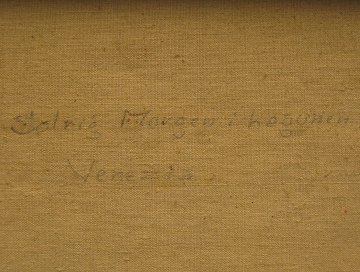 Solrig Morgen i Lagunen
Venezia.